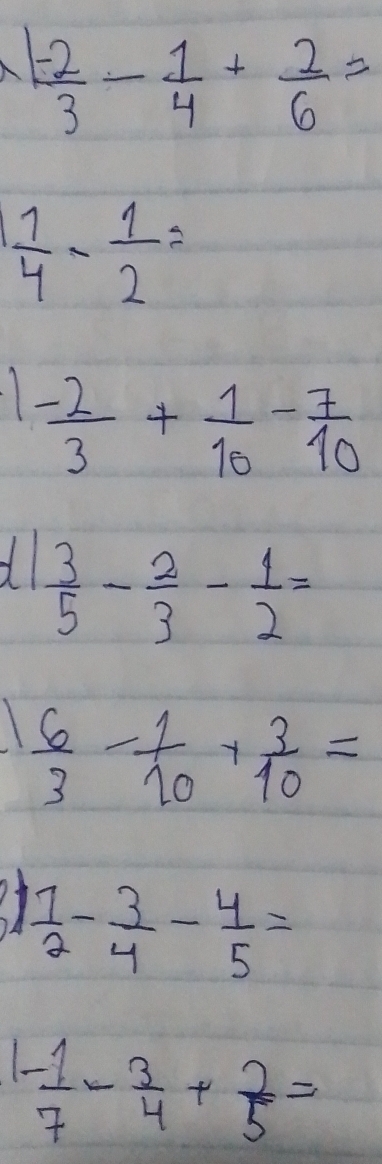 -2/3 - 1/4 + 2/6 =
1/4 - 1/2 =
-2/3 + 1/10 - 7/10
d) 3/5 - 2/3 - 1/2 =
6/3 - 1/10 + 3/10 =
1/2 - 3/4 - 4/5 =
-1/7 - 3/4 + 2/5 =